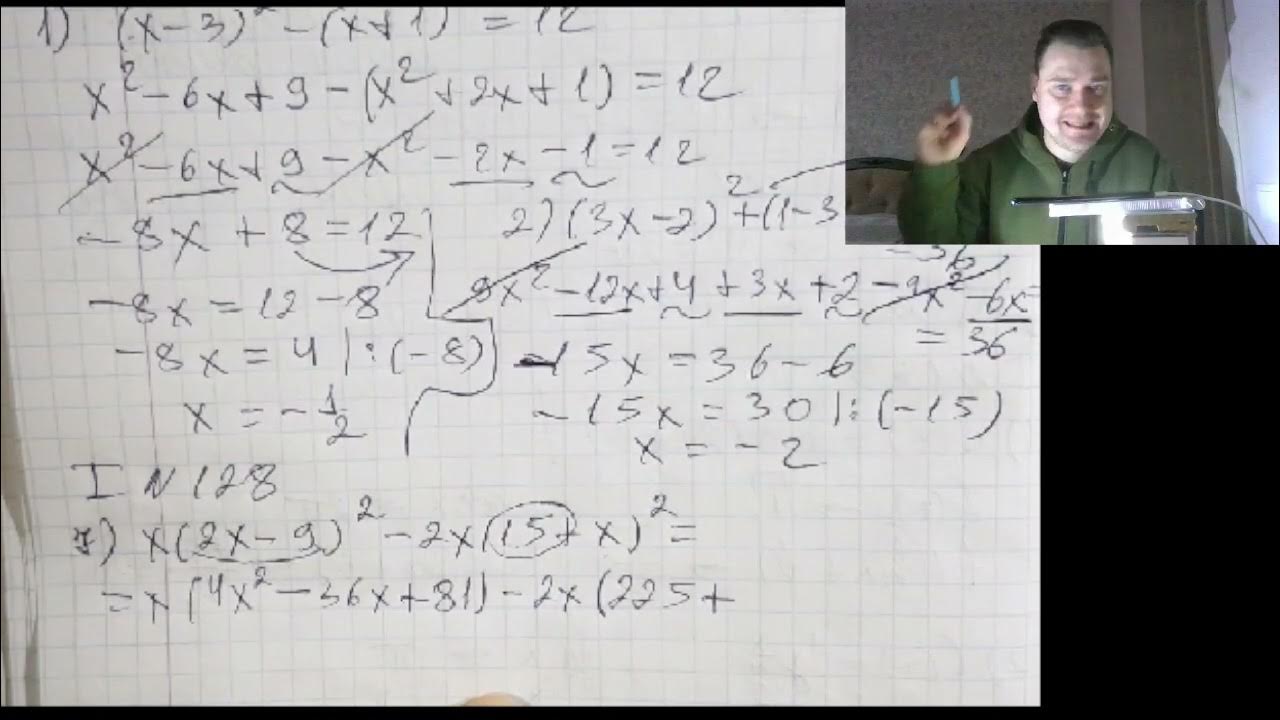 1) (x-3)² - (x+1) = 12
x² - 6x + 9 - (x² + 2x + 1) = 12
x² - 6x + 9 - x² - 2x - 1 = 12
-8x + 8 = 12
-8x = 12 - 8
-8x = 4 |:(-8)
x = -1/2
2) (3x-2)² + (1-3
= 36
9x² - 12x + 4 + 3x + 2 - 9x² - 6x =
= 36
-15x = 36 - 6
-15x = 30 |:(-15)
x = -2
I N 128
7) x(2x-9)² - 2x(15+x)² =
= x(4x² - 36x + 81) - 2x(225 +